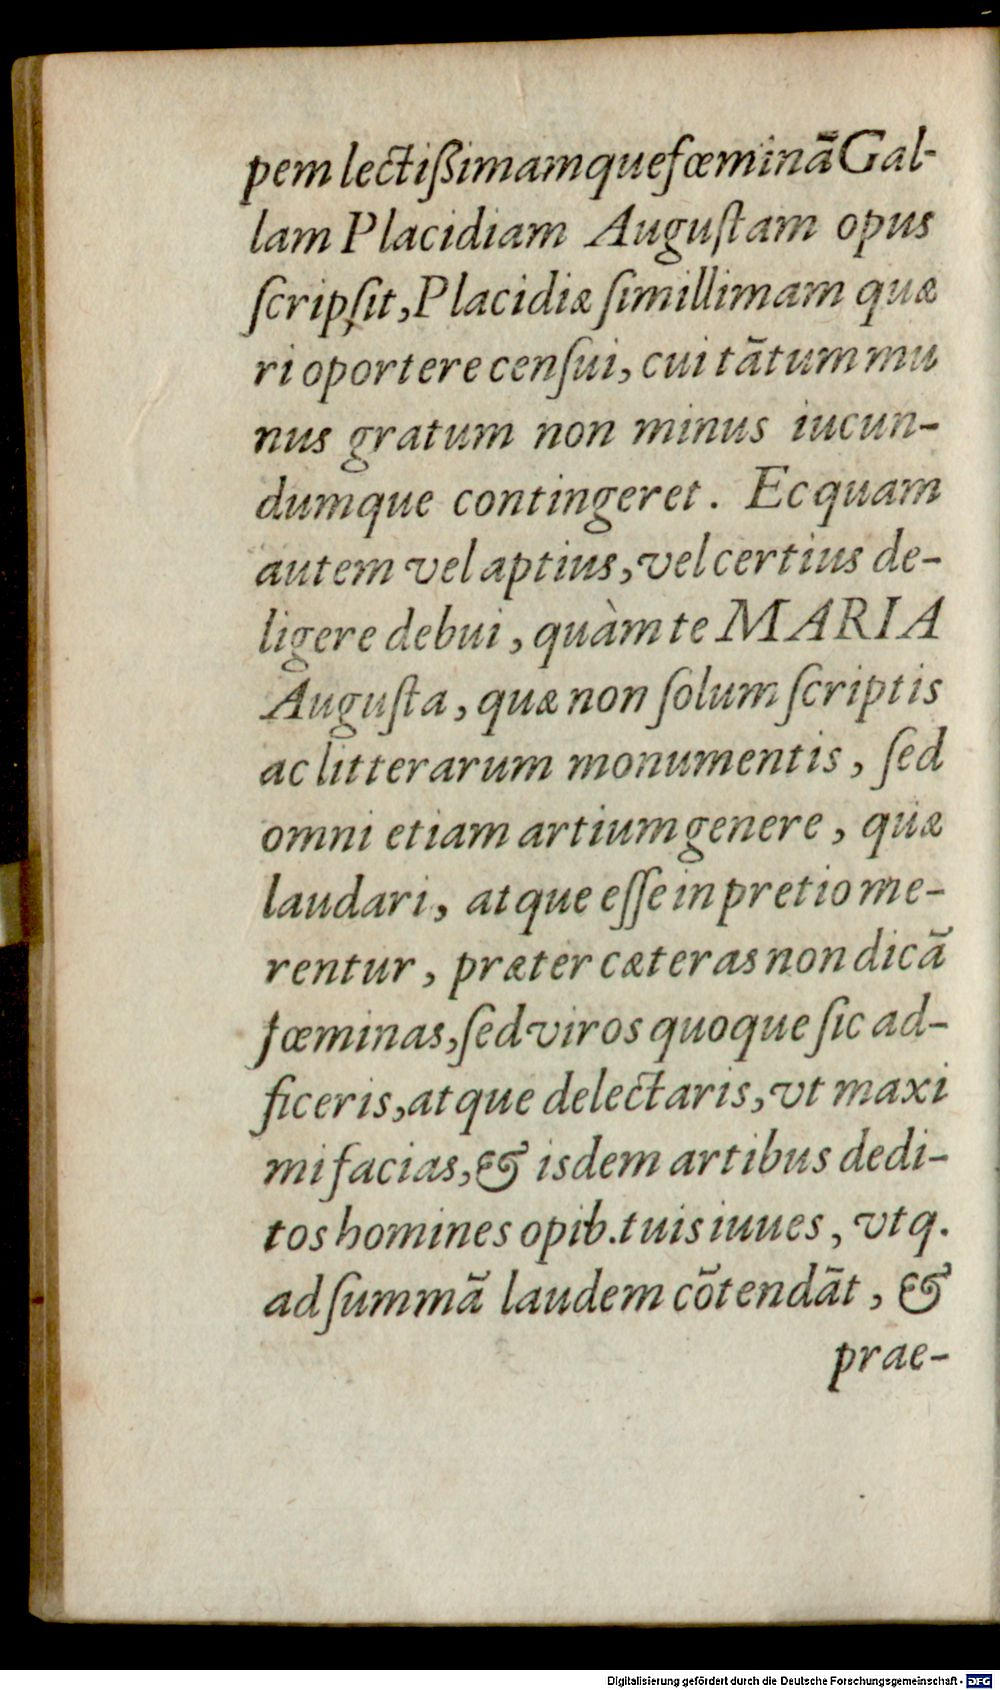 pem lectißimamque fœminā Gal-
lam Placidiam Auguſtam opus
ſcripſit, Placidiæ ſimillimam quæ
ri oportere cenſui, cui tātum mu
nus gratum non minus iucun-
dumque contingeret. Ecquam
autem vel aptius, vel certius de-
ligere debui, quàm te MARIA
Auguſta, quæ non ſolum ſcriptis
ac litterarum monumentis, ſed
omni etiam artium genere, quæ
laudari, atque eſſe in pretio me-
rentur, præter cæteras non dicā
fœminas, ſed viros quoque ſic ad-
ficeris, atque delectaris, vt maxi
mi facias, & isdem artibus dedi-
tos homines opib. tuis iuues, vtq.
ad ſummā laudem cōtendāt, &
prae-
Digitalisierung gefördert durch die Deutsche Forschungsgemeinschaft - DFG